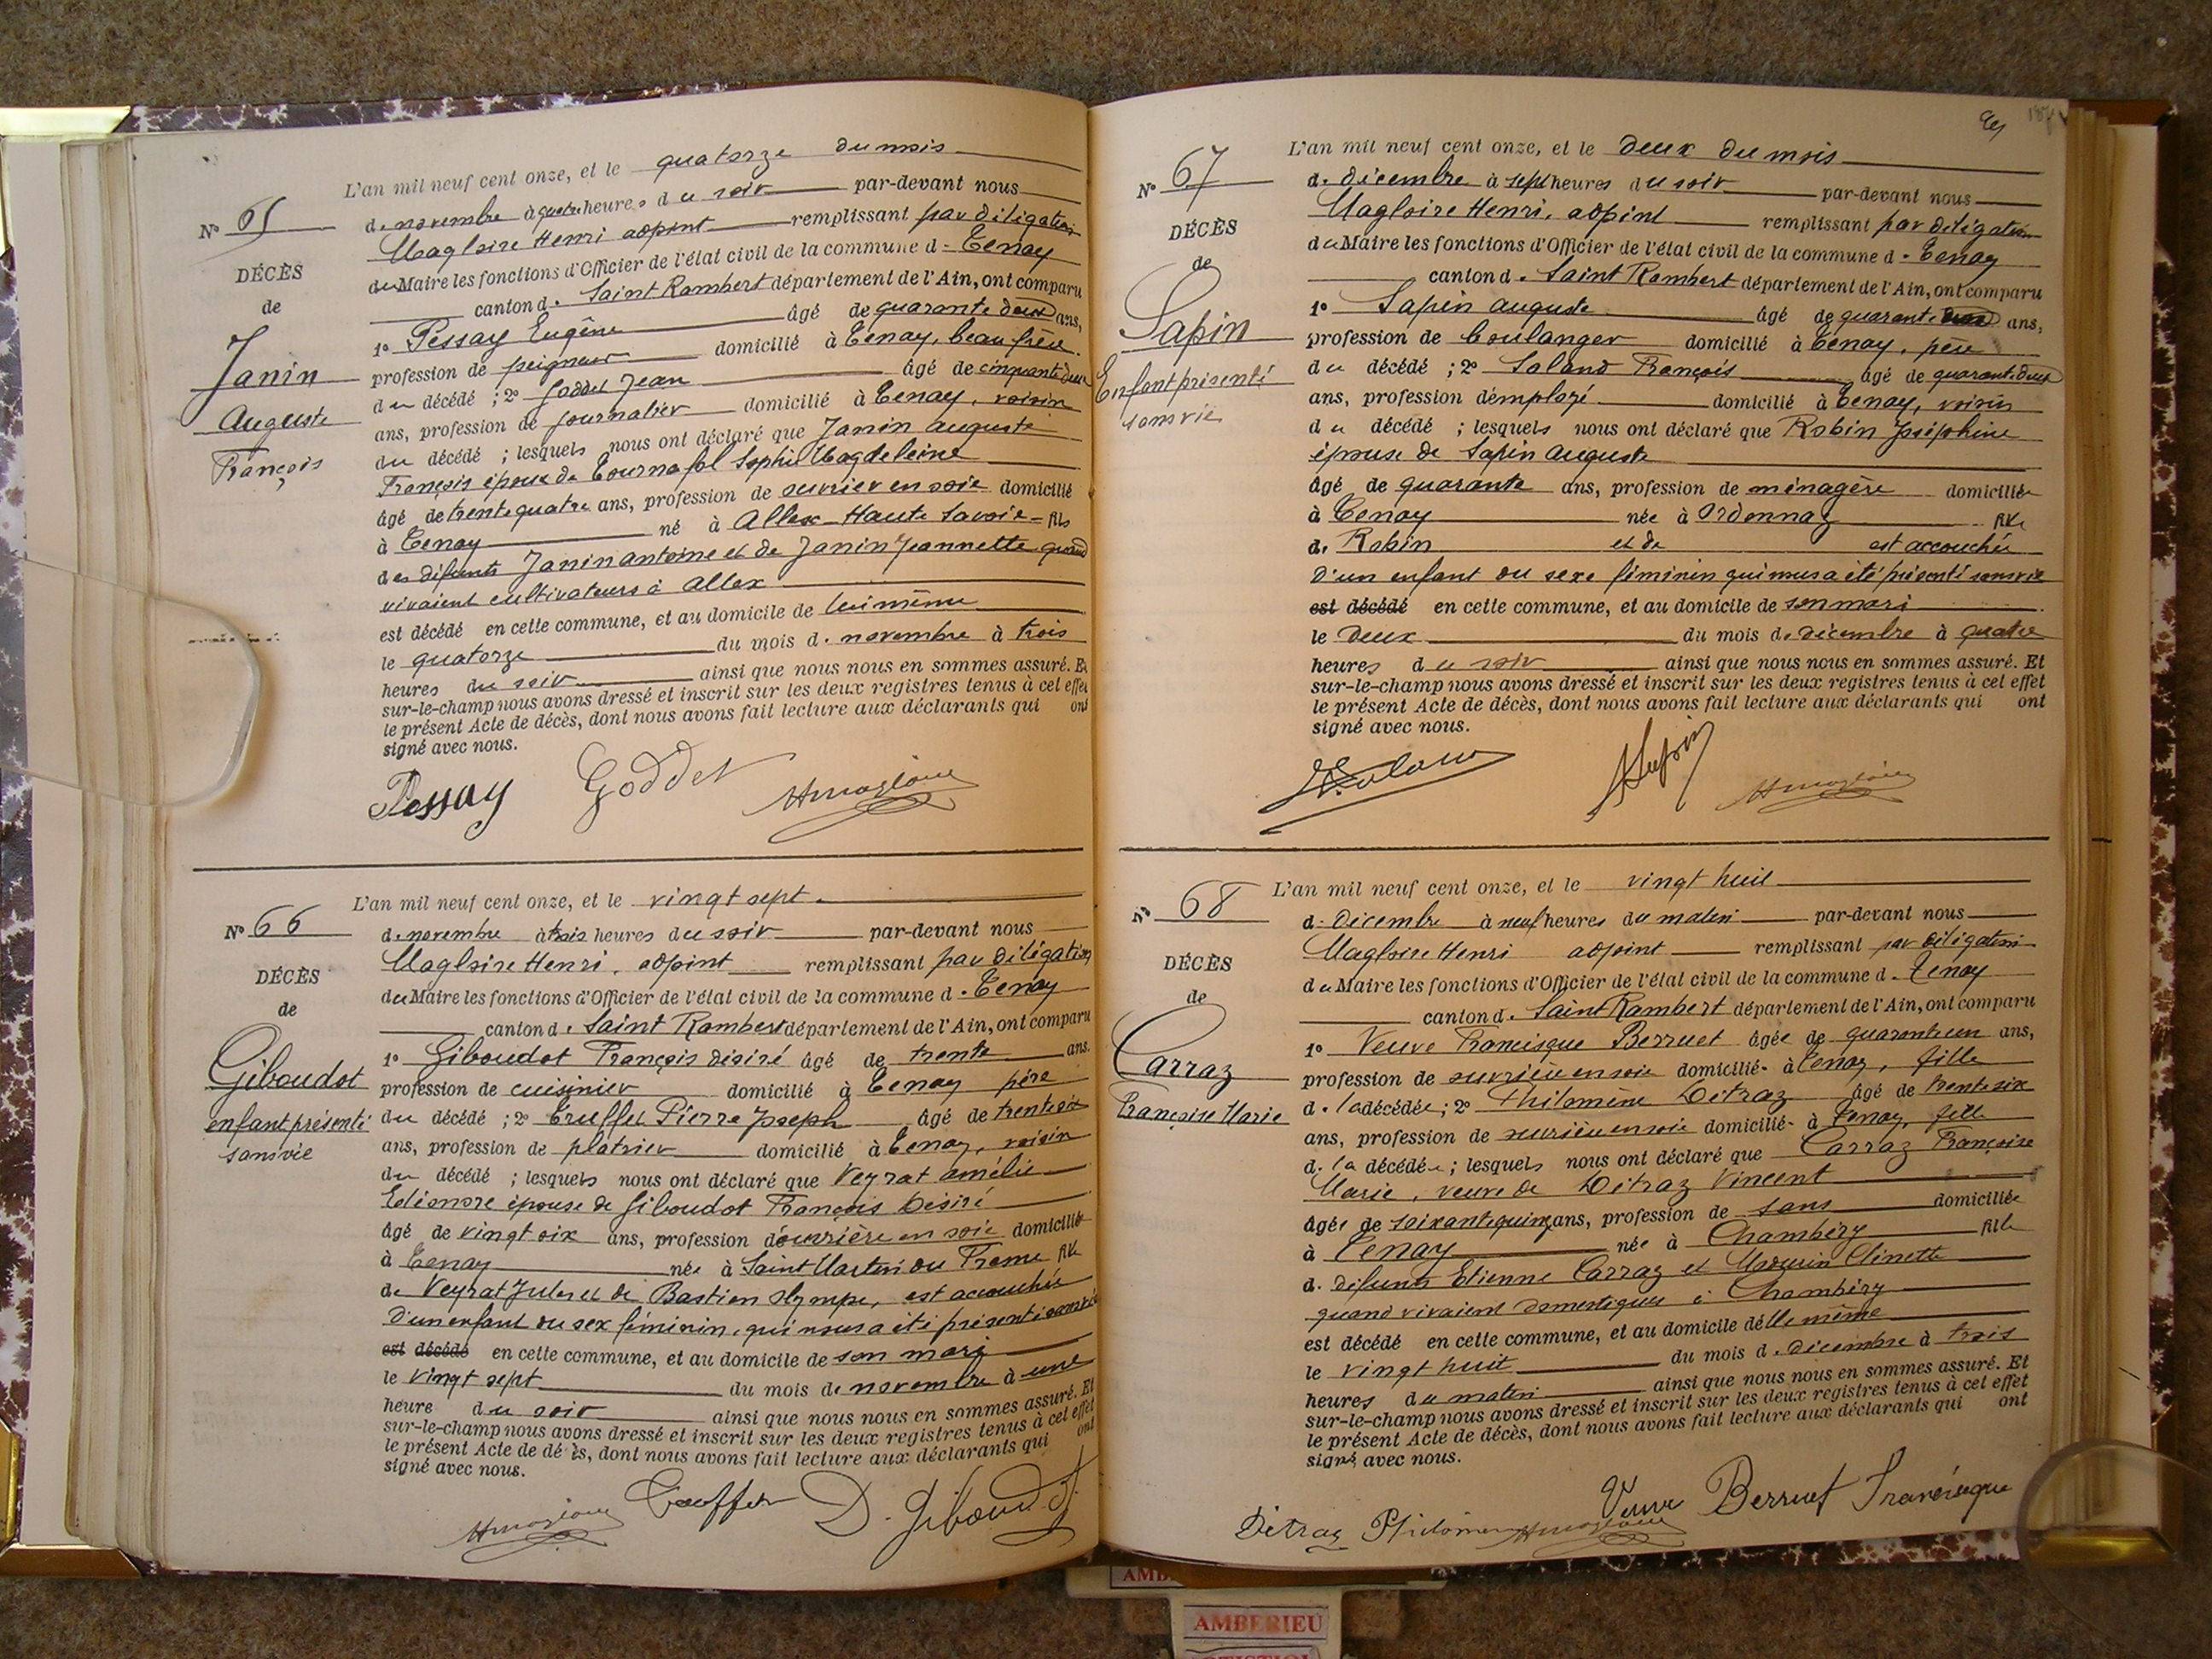 Nº 65
DÉCÈS
de
Janin
Auguste
François
L'an mil neuf cent onze, et le quatorze du mois
d. novembre à quatre heures du soir par-devant nous
Magloire Henri adjoint remplissant par délégation
du Maire les fonctions d'Officier de l'état civil de la commune d. Tenay
canton d. Saint Rambert département de l'Ain, ont comparu
1º Pessay Eugène âgé de quarante deux ans,
profession de peigneur domicilié à Tenay, beau frère
du décédé ; 2º Goddet Jean âgé de cinquante deux
ans, profession de journalier domicilié à Tenay, voisin
du décédé ; lesquels nous ont déclaré que Janin Auguste
François époux de Tournafol Sophie Magdeleine
âgé de trente quatre ans, profession de ouvrier en soie domicilié
à Tenay né à Allex Haute Savoie fils
des défunts Janin Antoine et de Janin Jeannette quand
vivaient cultivateurs à Allex
est décédé en cette commune, et au domicile de lui même
le quatorze du mois d. novembre à trois
heures du soir ainsi que nous nous en sommes assuré. Et
sur-le-champ nous avons dressé et inscrit sur les deux registres tenus à cet effet
le présent Acte de décès, dont nous avons fait lecture aux déclarants qui ont
signé avec nous.
Pessay Goddet Hmagloire
Nº 66
DÉCÈS
de
Giboudot
enfant présenté
sans vie
L'an mil neuf cent onze, et le vingt sept
d. novembre à trois heures du soir par-devant nous
Magloire Henri, adjoint remplissant par délégation
du Maire les fonctions d'Officier de l'état civil de la commune d. Tenay
canton d. Saint Rambert département de l'Ain, ont comparu
1º Giboudot François Désiré âgé de trente ans.
profession de cuisinier domicilié à Tenay père
du décédé ; 2º Truffet Pierre Joseph âgé de trente six
ans, profession de platrier domicilié à Tenay, voisin
du décédé ; lesquels nous ont déclaré que Veyrat Amélie
Eléonore épouse de Giboudot François Désiré
âgé de vingt six ans, profession d'ouvrière en soie domiciliée
à Tenay née à Saint Martin du Fresne fille
de Veyrat Jules et de Bastien Olympe, est accouchée
d'un enfant du sexe féminin, qui nous a été présenté sans vie
est décédé en cette commune, et au domicile de son mari
le vingt sept du mois de novembre à une
heure du soir ainsi que nous nous en sommes assuré. Et
sur-le-champ nous avons dressé et inscrit sur les deux registres tenus à cet effet
le présent Acte de dé ès, dont nous avons fait lecture aux déclarants qui ont
signé avec nous.
Hmagloire D. Giboudot
Nº 67
DÉCÈS
de
Sapin
Enfant présenté
sans vie
L'an mil neuf cent onze, et le deux du mois
d. décembre à sept heures du soir par-devant nous
Magloire Henri, adjoint remplissant par délégation
du Maire les fonctions d'Officier de l'état civil de la commune d. Tenay
canton d. Saint Rambert département de l'Ain, ont comparu
1º Sapin Auguste âgé de quarante ans,
profession de boulanger domicilié à Tenay, père
du décédé ; 2º Soland François âgé de quarante deux
ans, profession d'employé domicilié à Tenay, voisin
du décédé ; lesquels nous ont déclaré que Robin Joséphine
épouse de Sapin Auguste
âgé de quarante ans, profession de ménagère domiciliée
à Tenay née à Ordonnaz fille
d. Robin et de est accouchée
d'un enfant du sexe féminin qui nous a été présenté sans vie
est décédé en cette commune, et au domicile de son mari
le deux du mois de décembre à quatre
heures du soir ainsi que nous nous en sommes assuré. Et
sur-le-champ nous avons dressé et inscrit sur les deux registres tenus à cet effet
le présent Acte de décès, dont nous avons fait lecture aux déclarants qui ont
signé avec nous.
ASapin Hmagloire
Nº 68
DÉCÈS
de
Carraz
Françoise Marie
L'an mil neuf cent onze, et le vingt huit
d. Décembre à neuf heures du matin par-devant nous
Magloire Henri adjoint remplissant par délégation
du Maire les fonctions d'Officier de l'état civil de la commune d. Tenay
canton d. Saint Rambert département de l'Ain, ont comparu
1º Veuve Francisque Berruet âgée de quarante un ans,
profession de ouvrière en soie domiciliée à Tenay, fille
d. la décédée ; 2º Philomène Détraz âgé de trente six
ans, profession de ouvrière en soie domiciliée à Tenay, fille
d. la décédée ; lesquels nous ont déclaré que Carraz Françoise
Marie, veuve de Détraz Vincent
âgée de soixante quinze ans, profession de sans domiciliée
à Tenay née à Chambéry fille
d. défunts Etienne Carraz et Clinette
quand vivaient domestiques à Chambéry
est décédé en cette commune, et au domicile d'elle même
le vingt huit du mois d. décembre à trois
heures du matin ainsi que nous nous en sommes assuré. Et
sur-le-champ nous avons dressé et inscrit sur les deux registres tenus à cet effet
le présent Acte de décès, dont nous avons fait lecture aux déclarants qui ont
signé avec nous.
Veuve Berruet Francisque
Détraz Philomène Hmagloire
AMBERIEU